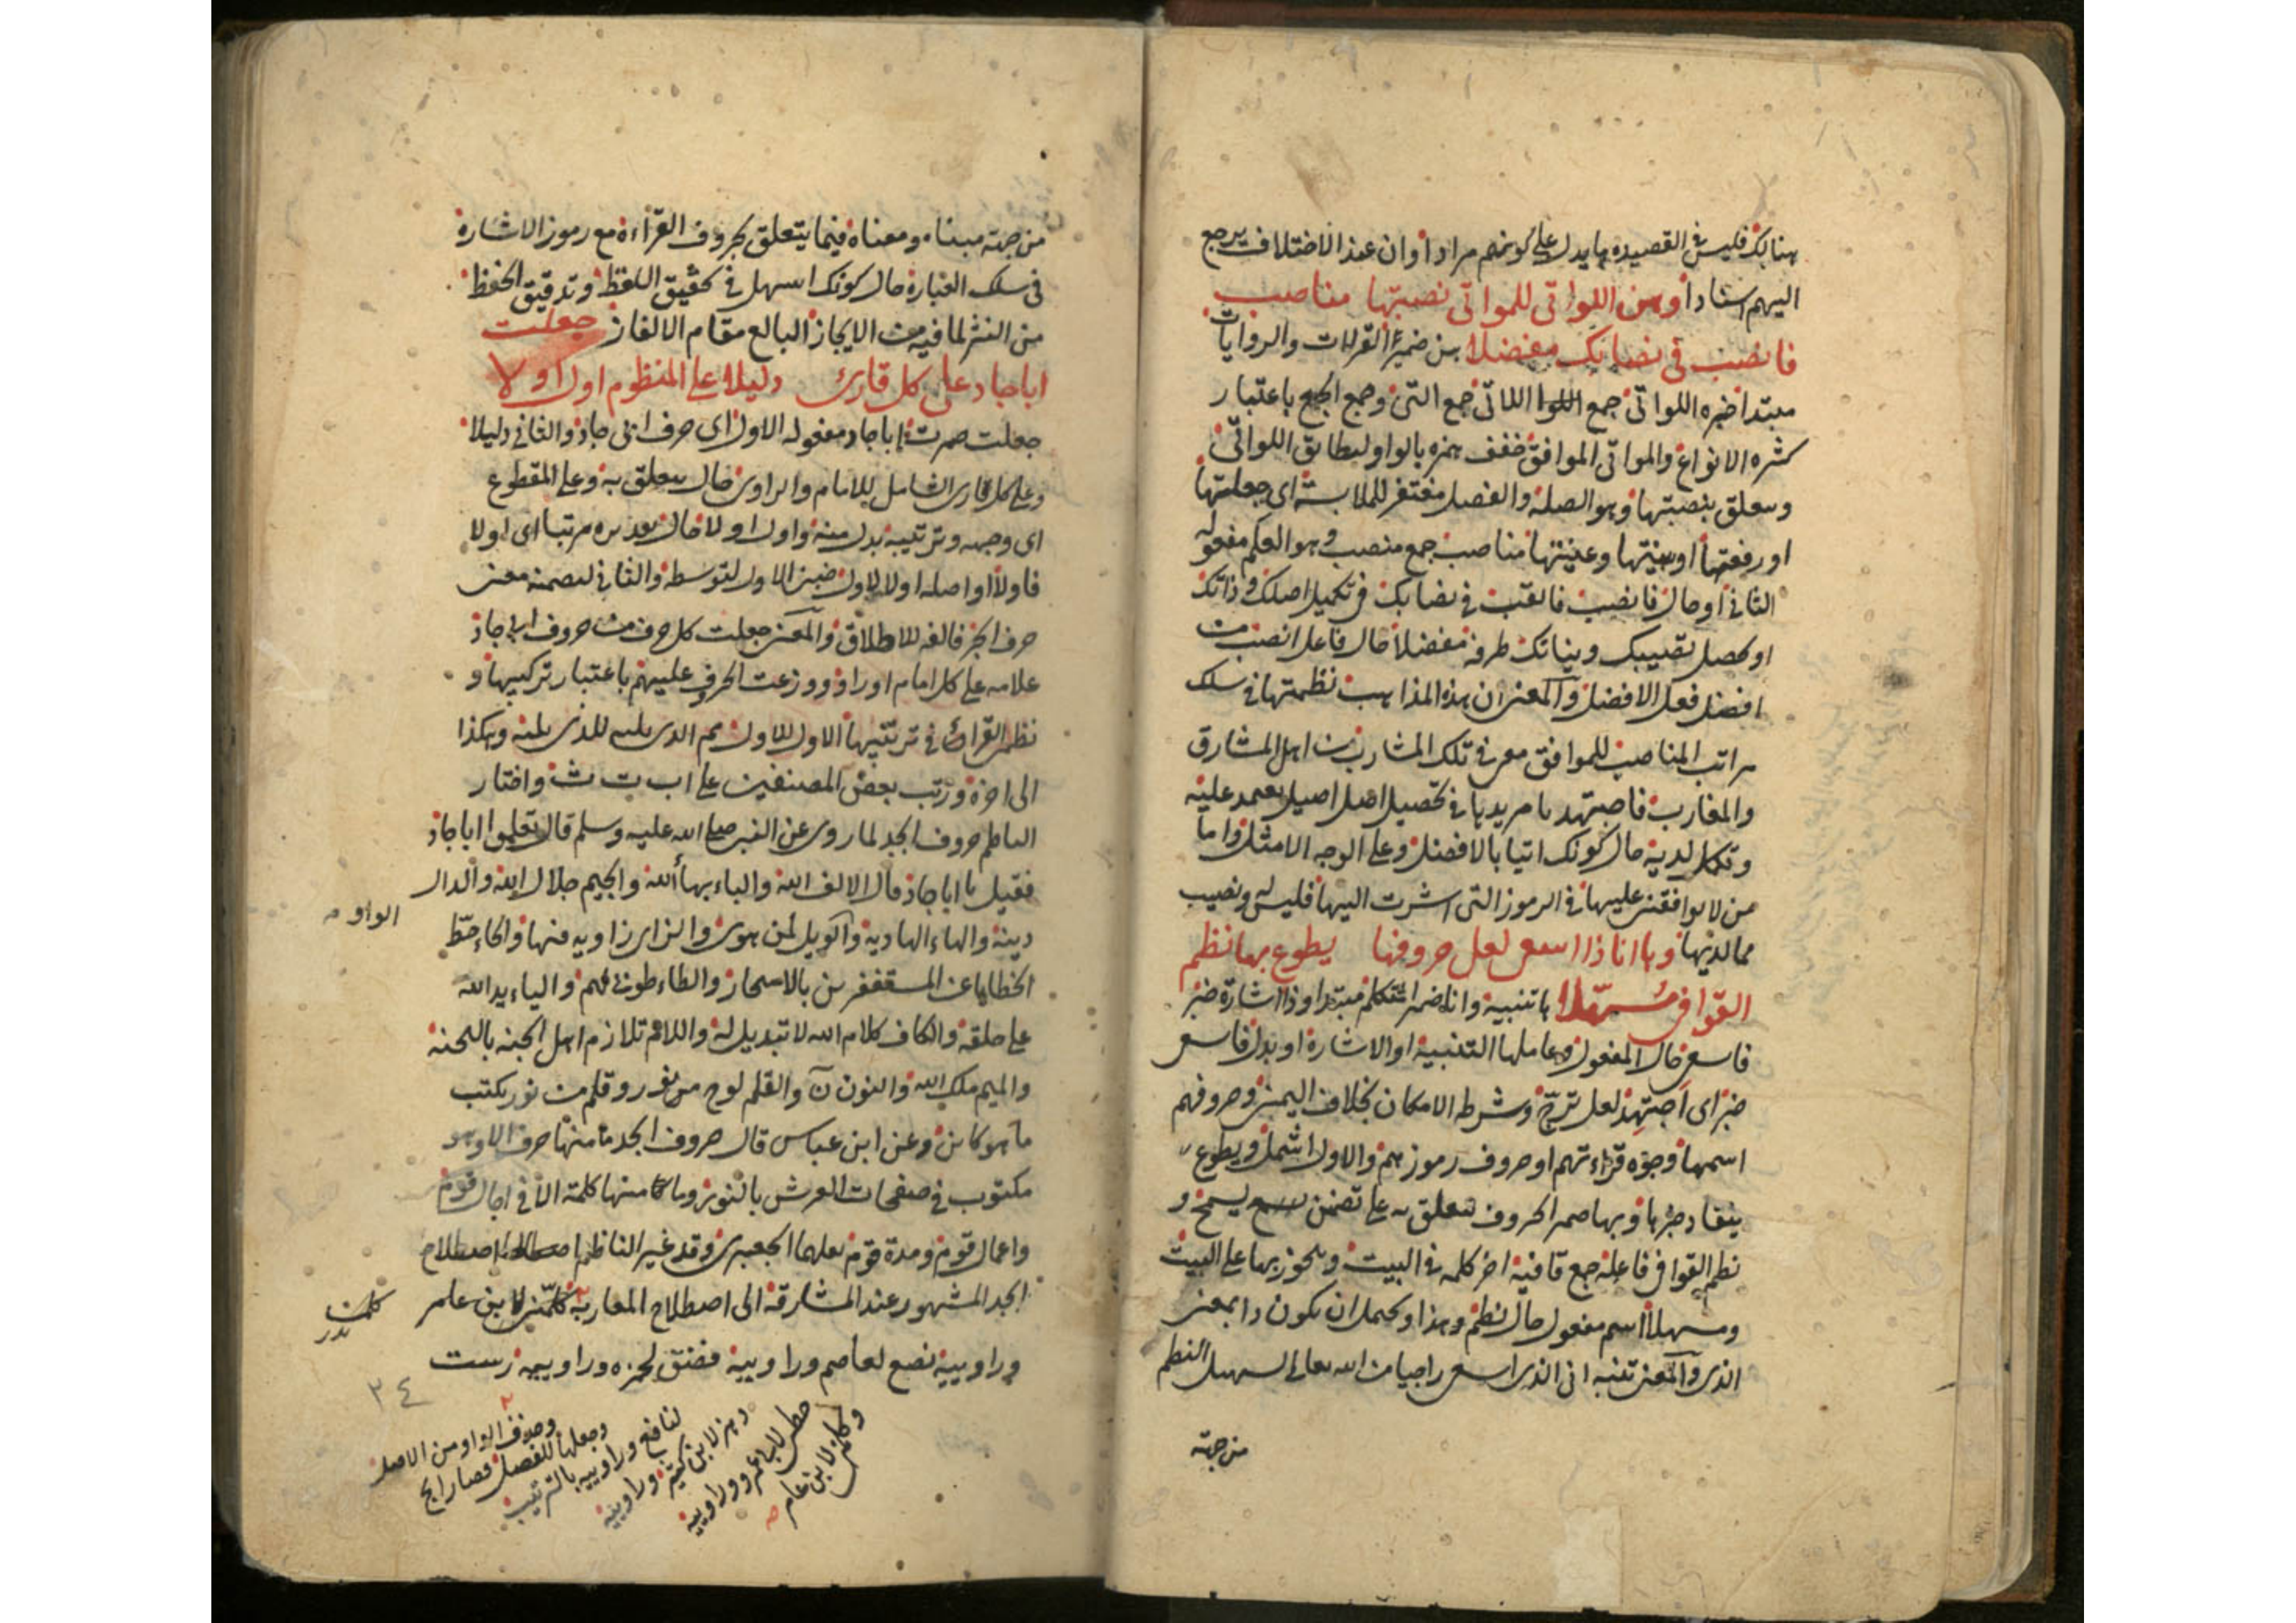 هنالك فليس في القصيده ما يدل على كونهم مرادا وان عند الاختلاف يرجع
اليهم اسنادا وهن اللواتي للمواتي نصبتها مناصب
فانصب في نصابك مفضلا هن ضمير القراات والروايات
مبتدا خبره اللواتي جمع اللاتي جمع التي وجمع الجمع باعتبار
كثره الانواع والمواتي الموافق خفف همزه بالواو ليطابق اللواتي
وتتعلق بنصبتها وهو الصلة والفصل مغتفر للملابسة اي جعلتها
او رفعتها او بينتها وعينتها مناصب جمع منصب وهو العلم مفعوله
الثاني او حال فانصب فاتعب في نصابك في تكميل اصلك وذاتك
او تحصيل نصيبك طرفه مفضلا حال فاعل انصب من
افضل فعل الافضل والمعنى ان هذه المذاهب نظمتها في سلك
مراتب المناصب للموافق معي في تلك المشارب من اهل المشارق
والمغارب فاجتهد يا مريدها في تحصيل اصل اصيل تعتمد عليه
حال كونك اتيا بالافضل وعلى الوجه الامثل واما
من لا يوافقني عليها في الرموز التي اشرت اليها فليس له نصيب
مما لديها وها انا ذا اسعى لعل حروفها يطوع بها نظم
القوافي مسهلا ها تنبيه وانا ضمير المتكلم مبتدا وذا اشارة خبر
فاسعى حال المفعول وعاملها التنبيه او الاشارة او بدل فاسعى
خبر اي اجتهد لعل ترج وشرطه الامكان بخلاف التمني وحروفهم
اسمها وجوه قراءتهم او حروف رموزهم والاول اشمل ويطوع
ينقاد خبرها وبها ضمير الحروف تتعلق به على تضمن يسمح و
نظم القوافي فاعله جمع قافية اخر كلمه في البيت وتجوز بها على البيت
ومسهلا اسم مفعول حال نظم وهذا ويحتمل ان يكون ذا بمعنى
الذي والمعنى تنبه اني الذي اسعى راجيا من الله تعالى تسهيل النظم
من جهة
من جهة مبناه ومعناه فيما يتعلق بحروف القراءة مع رموز الاشارة
في سلك العبارة حال كونك اسهل في تحقيق اللفظ وتدقيق الحفظ
من النثر لما فيه من الايجاز البالغ مقام الالغاز جعلت
اباجاد على كل قارئ دليلا على المنظوم اول اولا
جعلت صيرت اباجاد مفعوله الاول اي حرف ابي جاد والثاني دليلا
وعلى كل قارئ الشامل للامام والراوي حال يتعلق به وعلى المقطوع
اي وجهه وترتيبه بدل منه واول اولا حال تقديره مرتبا اي اولا
فاولا واصله اولا لاول ضمن الاول لتوسطه والثاني لتضمنه معنى
حرف الجر فالفه للاطلاق والمعنى جعلت كل حرف من حروف ابي جاد
علامه على كل امام او راو ووزعت الحروف عليهم باعتبار تركيبها و
نظم القراء في ترتيبها الاول للاول ثم الذي يليه للذي يليه وهكذا
الى اخره ورتب بعض المصنفين على ا ب ت ث واختار
الناظم حروف ابجد لما روي عن النبي صلى الله عليه وسلم قال تعلموا اباجاد
فقيل ما اباجاد قال الالف الله والباء بهاء الله والجيم جلال الله والدال
دينه والهاء الهاوية والويل لمن هوى والزاي زاوية فيها والحاء حط
الخطايا عن المستغفرين بالاسحار والطاء طوبى لهم والياء يد الله
على خلقه والكاف كلام الله لا تبديل له واللام تلازم اهل الجنة بالتحية
والميم ملك الله والنون ن والقلم لوح من نور وقلم من نور يكتب
ما هو كائن وعن ابن عباس قال حروف ابجد ما منها حرف الا وهو
مكتوب في صفحات العرش بالنور وما منها كلمة الا في اجال قوم
واعمال قوم ومدة قوم نقلهما الجعبري وقد غير الناظم اصطلاح
ابجد المشهور عند المشارقة الى اصطلاح المغاربه كلم لابن عامر
وراوييه نصع لعاصم وراوييه فضق لحمزه وراوييه رست
الواو
كلمن
٣٤
وحذف الواو من الاصل
وجعلها للفصل فصار ابج
لنافع وراوييه بالترتيب
دهز لابن كثير وراوييه
حطي لابي عمرو وراوييه
وكلم لابن عامر